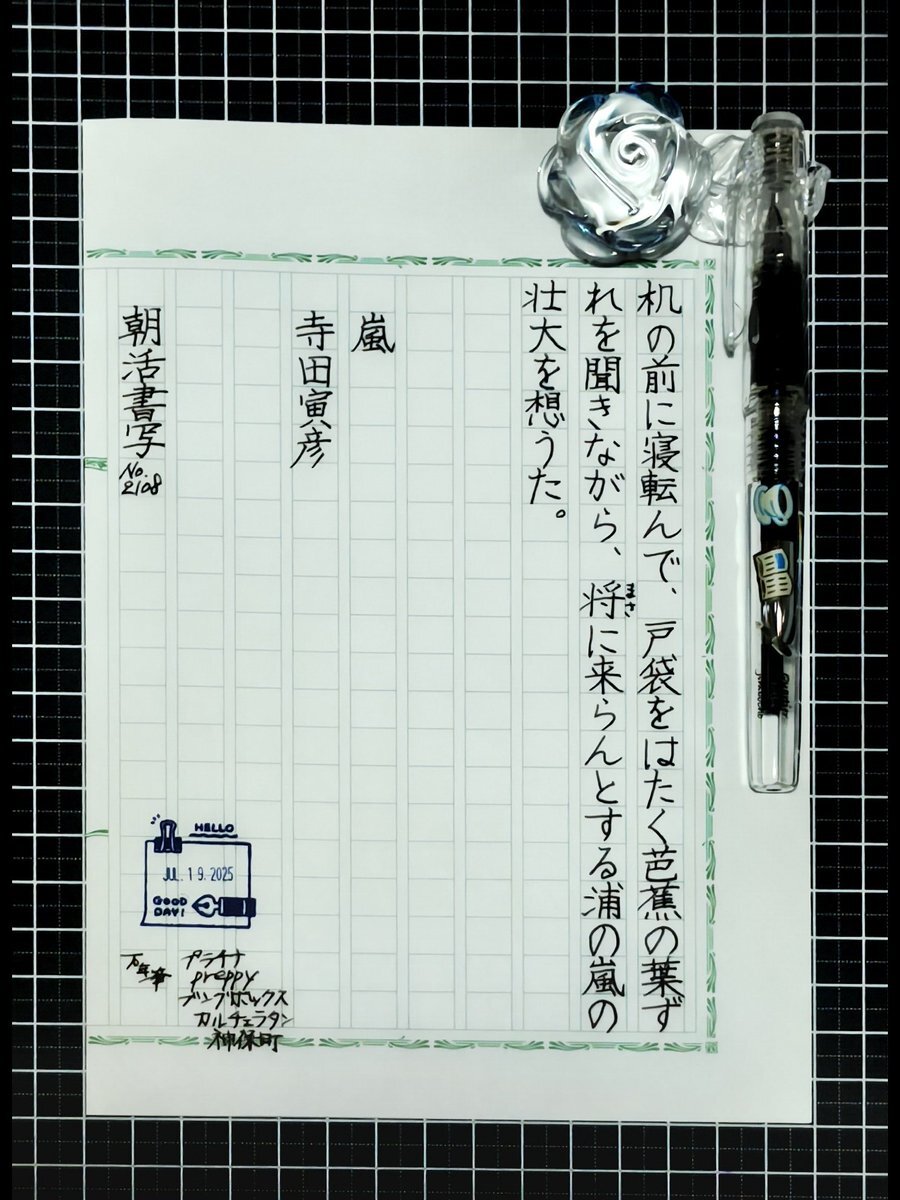 机の前に寝転んで、戸袋をはたく芭蕉の葉ず
れを聞きながら、将に来らんとする浦の嵐の
まさ
壮大を想うた。
嵐
寺田寅彦
朝活書写
No.
2108
HELLO
JUL. 19. 2025
GOOD
DAY!
万年筆
プラチナ
preppy
ブングボックス
カルチェラタン
神保町